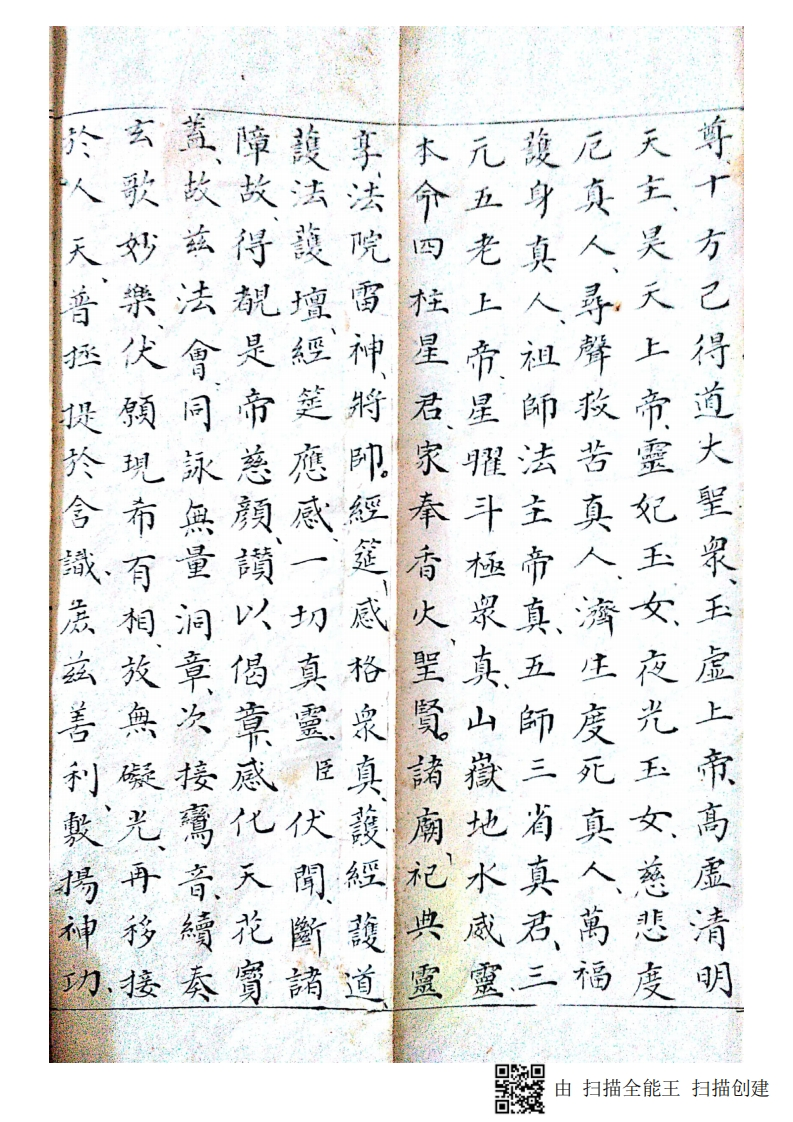 尊、十方已得道大聖衆、玉虛上帝、高虛清明
天主、昊天上帝、靈妃玉女、夜光玉女、慈悲度
厄真人、尋聲救苦真人、濟生度死真人、萬福
護身真人、祖師法主帝真、五師三省真君、三
元五老上帝、星曜斗極衆真、山嶽地水威靈、
本命四柱星君、家奉香火、聖賢。諸廟祀典靈
享、法院雷神、將帥。經筵感格衆真、護經護道、
護法護壇、經筵應感、一切真靈、臣伏聞、斷諸
障故、得覩是帝慈顔、讚以偈章、感化天花寳
蓋、故玆法會、同詠無量洞章、次接鸞音、續奏
玄歌妙樂、伏願現希有相、放無礙光、再移接
於人天、普拯提於含識、庶玆善利、敷揚神功、
由 扫描全能王 扫描创建